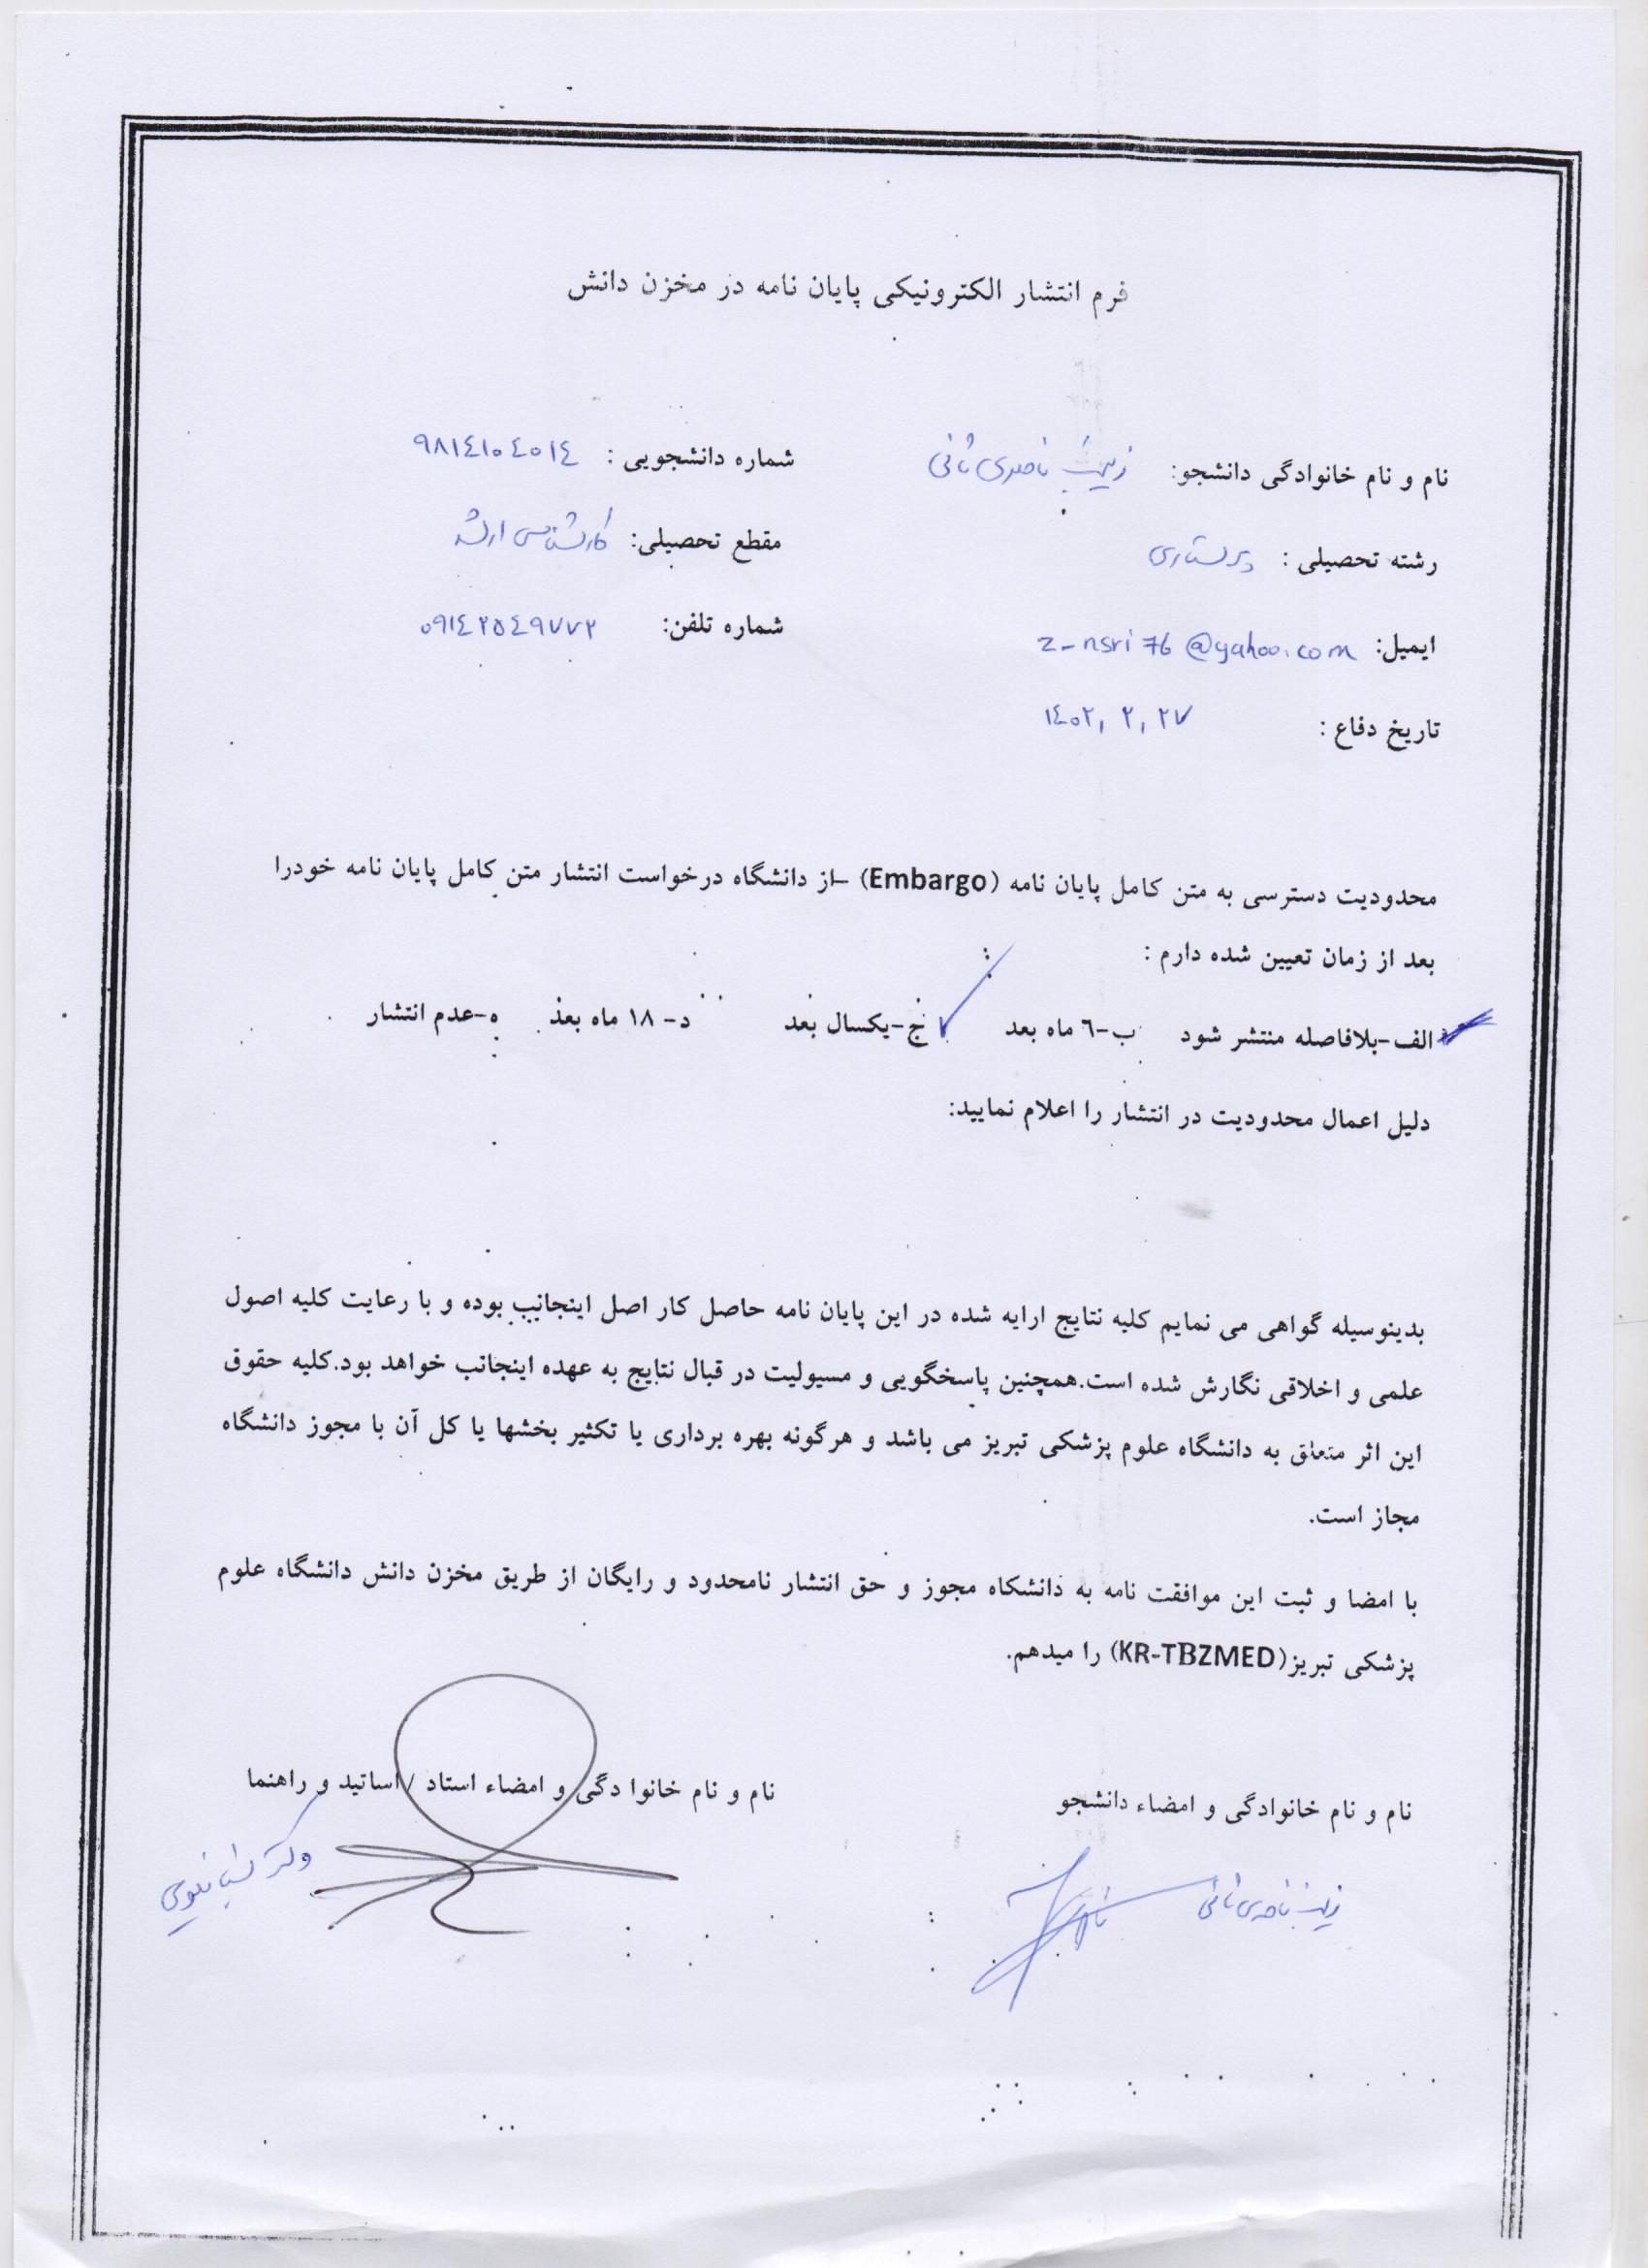 فرم انتشار الکترونیکی پایان نامه در مخزن دانش
نام و نام خانوادگی دانشجو: زینب ناصری ثانی شماره دانشجویی : ۹۸۱٤۱۰٤۰۱٤
رشته تحصیلی : پرستاری مقطع تحصیلی: کارشناسی ارشد
ایمیل: z_nsri76@yahoo.com شماره تلفن: ۰۹۱٤۲۵٤۹۷۷۲
تاریخ دفاع : ۱٤۰۲, ۲, ۲۷
محدودیت دسترسی به متن کامل پایان نامه (Embargo) –از دانشگاه درخواست انتشار متن کامل پایان نامه خودرا
بعد از زمان تعیین شده دارم :
الف-بلافاصله منتشر شود ب-٦ ماه بعد ج-یکسال بعد د- ۱۸ ماه بعد ه-عدم انتشار
دلیل اعمال محدودیت در انتشار را اعلام نمایید:
بدینوسیله گواهی می نمایم کلیه نتایج ارایه شده در این پایان نامه حاصل کار اصل اینجانب بوده و با رعایت کلیه اصول
علمی و اخلاقی نگارش شده است.همچنین پاسخگویی و مسیولیت در قبال نتایج به عهده اینجانب خواهد بود.کلیه حقوق
این اثر متعلق به دانشگاه علوم پزشکی تبریز می باشد و هرگونه بهره برداری یا تکثیر بخشها یا کل آن با مجوز دانشگاه
مجاز است.
با امضا و ثبت این موافقت نامه به دانشکاه مجوز و حق انتشار نامحدود و رایگان از طریق مخزن دانش دانشگاه علوم
پزشکی تبریز(KR-TBZMED) را میدهم.
نام و نام خانوادگی و امضاء دانشجو نام و نام خانوا دگی و امضاء استاد / اساتید و راهنما
زینب ناصری ثانی دکتر